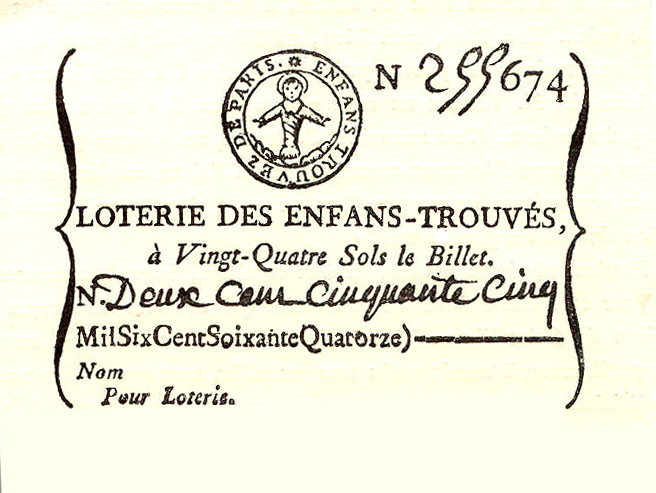 ENFANS TROUVEZ DE PARIS.
N 255674
LOTERIE DES ENFANS-TROUVÉS,
à Vingt-Quatre Sols le Billet.
N. Deux Cent Cinquante Cinq
MilSixCentSoixanteQuatorze)
Nom
Pour Loterie.